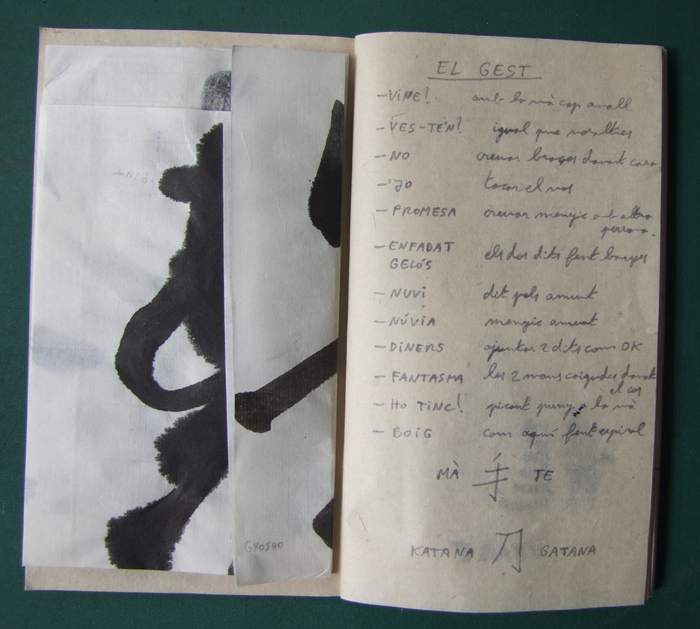 GYOSHO
EL GEST
- VINE! amb la mà cap avall
- VES-TE'N! igual que nosaltres
- NO creuar braços davant cara
- JO tocar el nas
- PROMESA creuar menyic amb altra
persona.
- ENFADAT els dos dits fent banyes
GELÓS
- NUVI dit pols amunt
- NÚVIA menyic amunt
- DINERS ajuntar 2 dits com OK
- FANTASMA les 2 mans caigudes davant
el cos
- HO TINC! picant puny a la mà
- BOIG com aquí fent espiral
MÀ 手 TE
KATANA 刀 GATANA